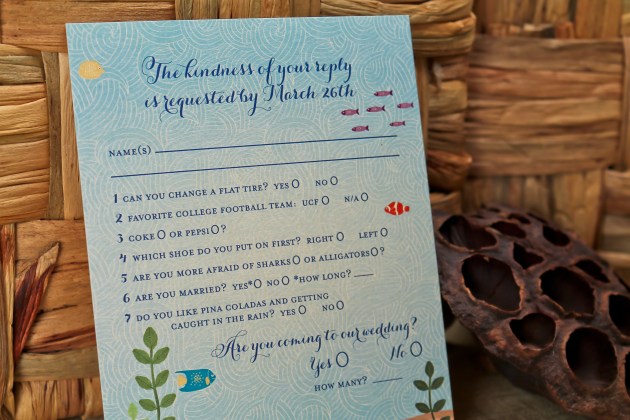 The kindness of your reply
is requested by March 26th
NAME(S)
1 CAN YOU CHANGE A FLAT TIRE? YES NO
2 FAVORITE COLLEGE FOOTBALL TEAM: UCF N/A
3 COKE OR PEPSI ?
4 WHICH SHOE DO YOU PUT ON FIRST? RIGHT LEFT
5 ARE YOU MORE AFRAID OF SHARKS OR ALLIGATORS ?
6 ARE YOU MARRIED? YES* NO *HOW LONG?
7 DO YOU LIKE PINA COLADAS AND GETTING
CAUGHT IN THE RAIN? YES NO
Are you coming to our wedding?
Yes No
HOW MANY?